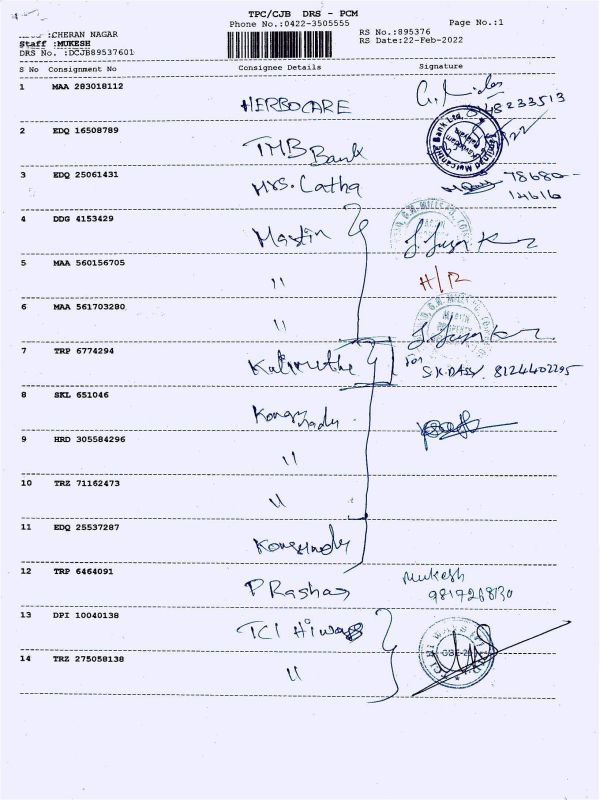 TPC/CJB DRS - PCM
Phone No.:0422-3505555
Page No.:1
:CHERAN NAGAR
Staff :MUKESH
DRS No. :DCJB89537601
RS No.:895376
RS Date:22-Feb-2022
S No Consignment No Consignee Details Signature
1 MAA 283018112 HERBOCARE
48233513
2 EDQ 16508789 TMB Bank
3 EDQ 25061431 Mrs. Latha 78680-
14616
4 DDG 4153429 Martin
5 MAA 560156705 " H/R
6 MAA 561703280 "
7 TRP 6774294 Kalimuthu for
S.K.DASS/. 8124402295
8 SKL 651046 Kongu nadu
9 HRD 305584296 "
10 TRZ 71162473 "
11 EDQ 25537287 Kongunadu
12 TRP 6464091 PRashas Mukesh
13 DPI 10040138 TCI Hiways
14 TRZ 275058138 "